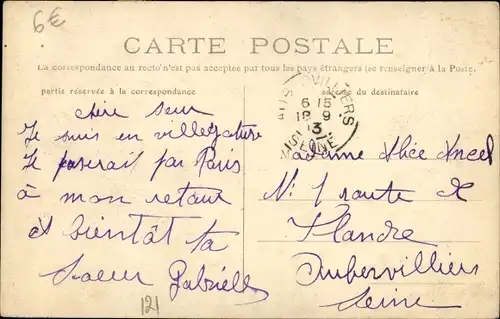 6€
CARTE POSTALE
La correspondance au recto n'est pas acceptée par tous les pays étrangers (se renseigner à la Poste.
partie réservée à la correspondance
du destinataire
chère seur
Je suis en villegature
Je paserait par Paris
à mon retour
et bientât ta
soeur Gabriell
121
VILLIERS
6 15
18 9
13
SEINE
Madame Alice
N: 1 route de
Flandre
Aubervilliers
Seine